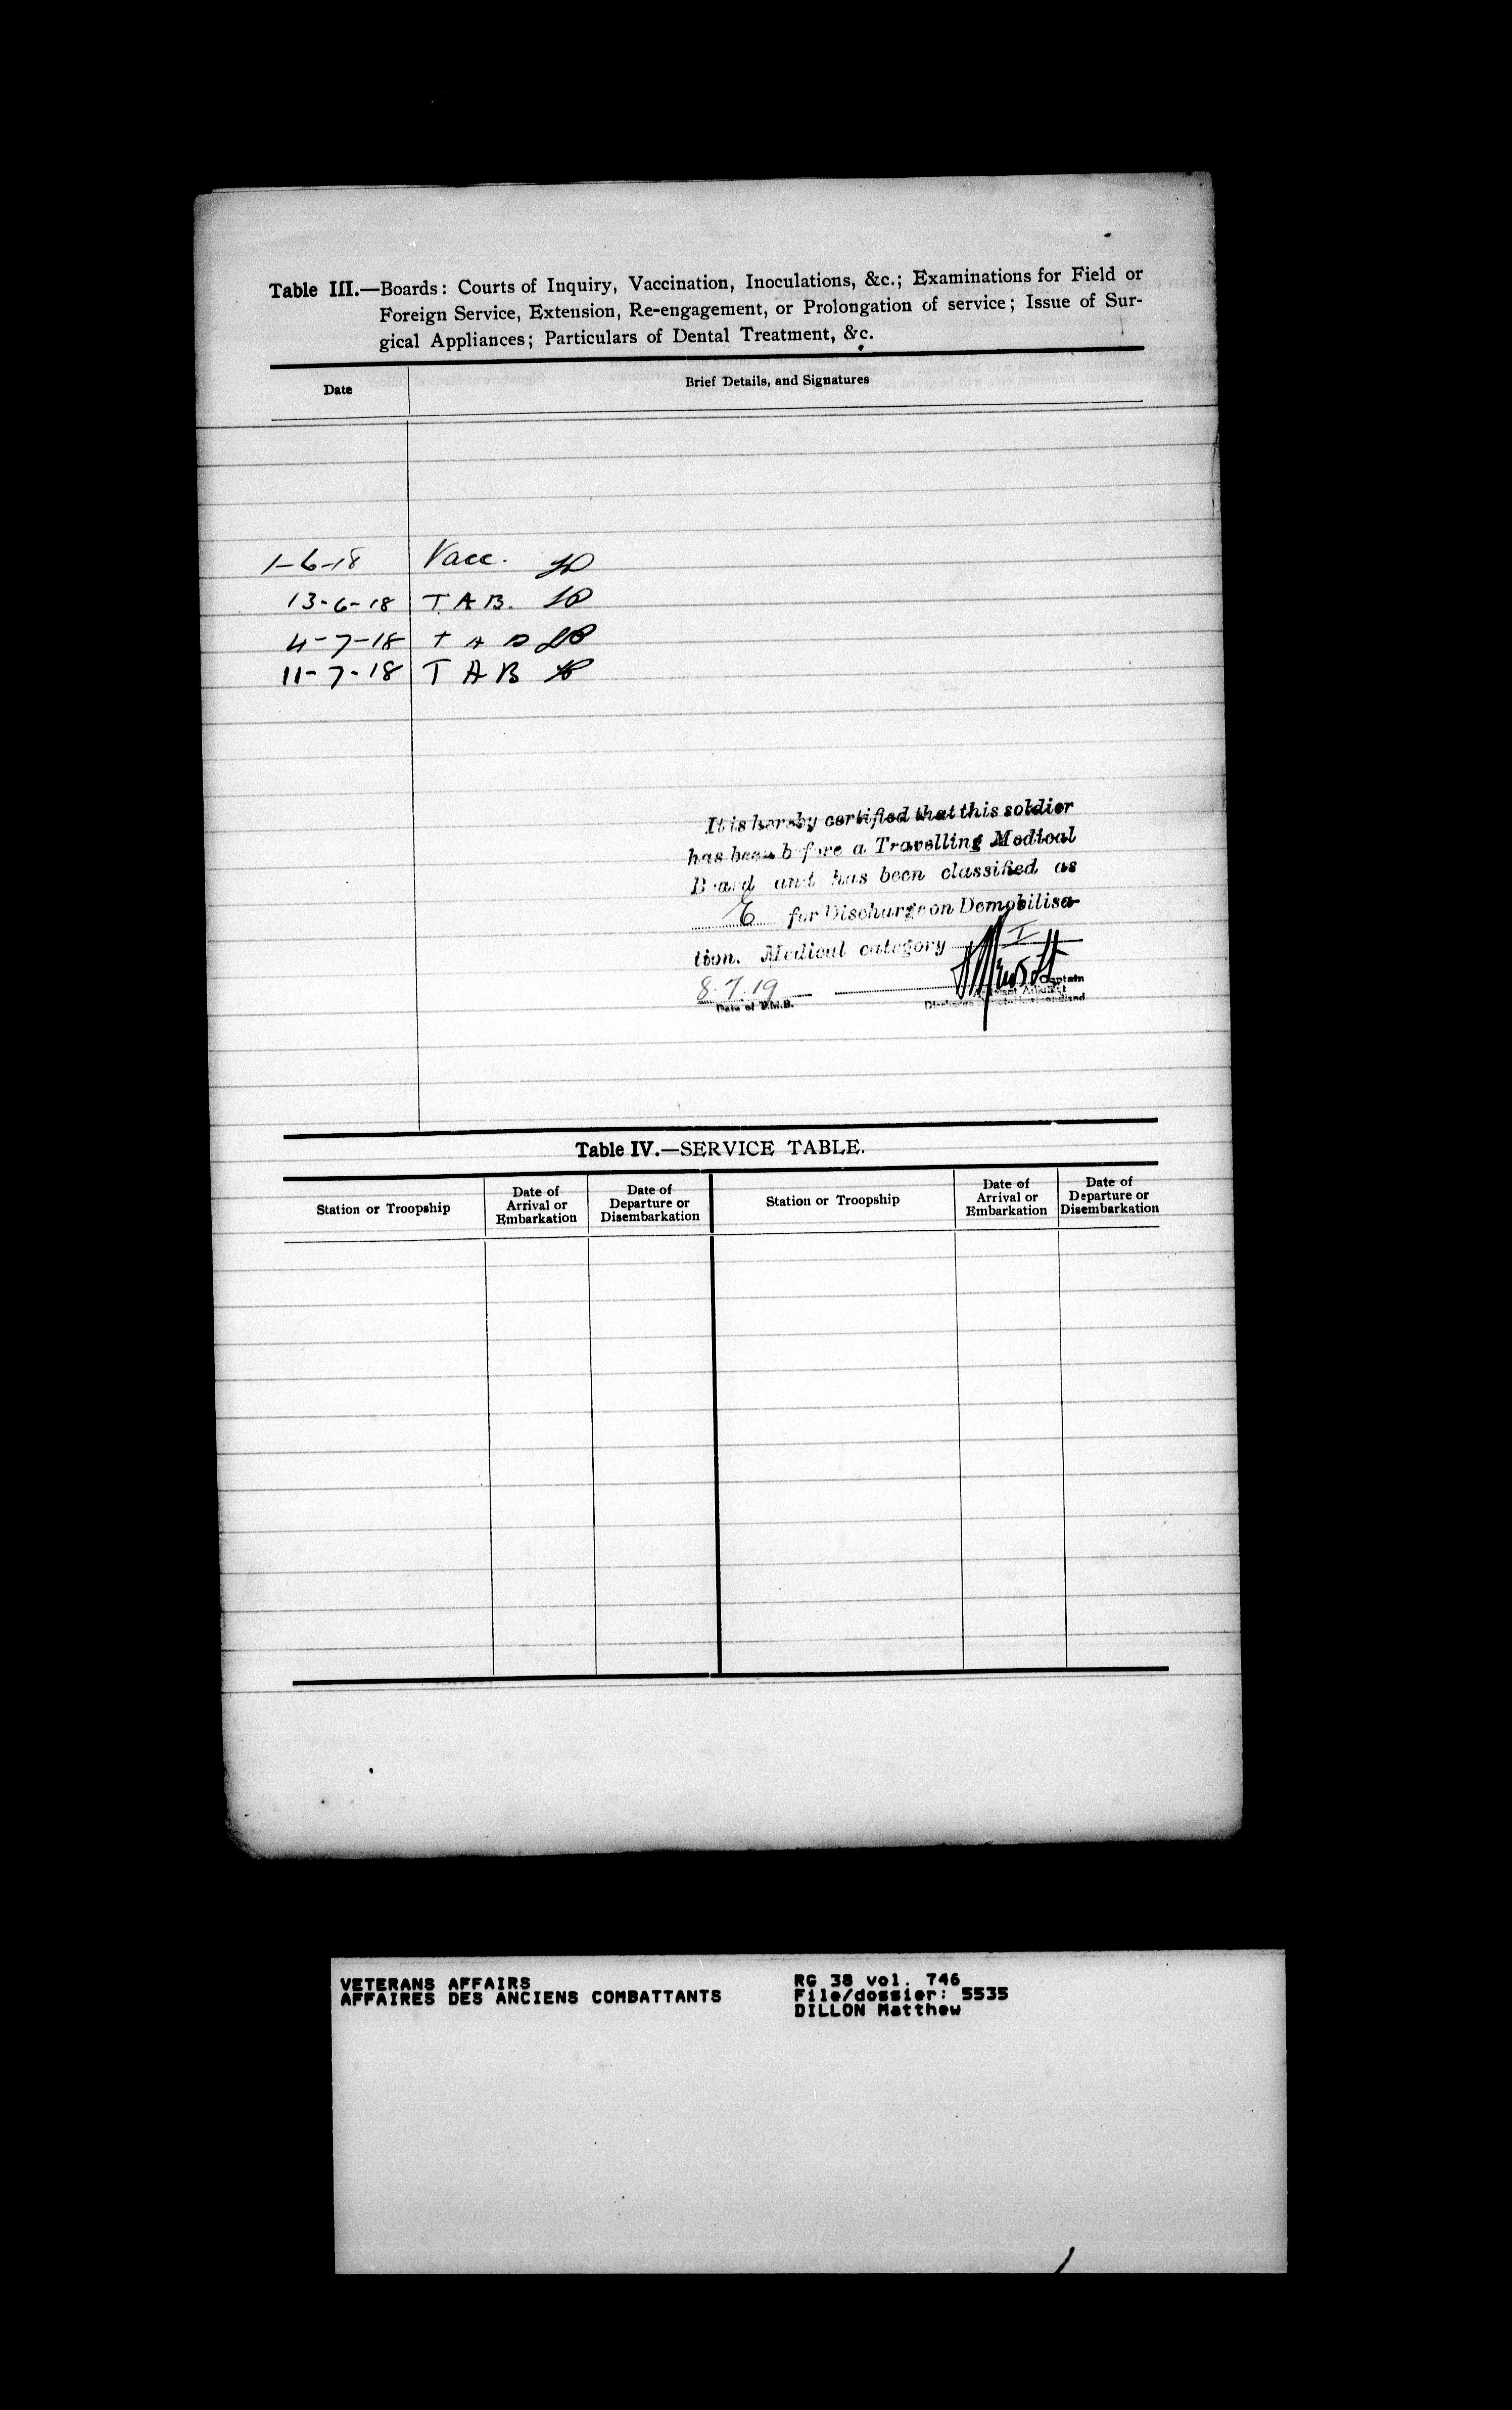 Table III.—Boards: Courts of Inquiry, Vaccination, Inoculations, &c.; Examinations for Field or
Foreign Service, Extension, Re-engagement, or Prolongation of service; Issue of Sur-
gical Appliances; Particulars of Dental Treatment, &c.
Date Brief Details, and Signatures
1-6-18 Vacc.
13-6-18 T A B.
4-7-18 T A B
11-7-18 T A B
It is hereby certified that this soldier
has been before a Travelling Medical
Board and has been classified as
E for Discharge on Demobilisa-
tion. Medical category I
8.7.19
Captain
Date of T.M.B.
Table IV.—SERVICE TABLE.
Station or Troopship Date of Arrival or Embarkation Date of Departure or Disembarkation Station or Troopship Date of Arrival or Embarkation Date of Departure or Disembarkation
VETERANS AFFAIRS RG 38 vol. 746
AFFAIRES DES ANCIENS COMBATTANTS File/dossier: 5535
DILLON Matthew